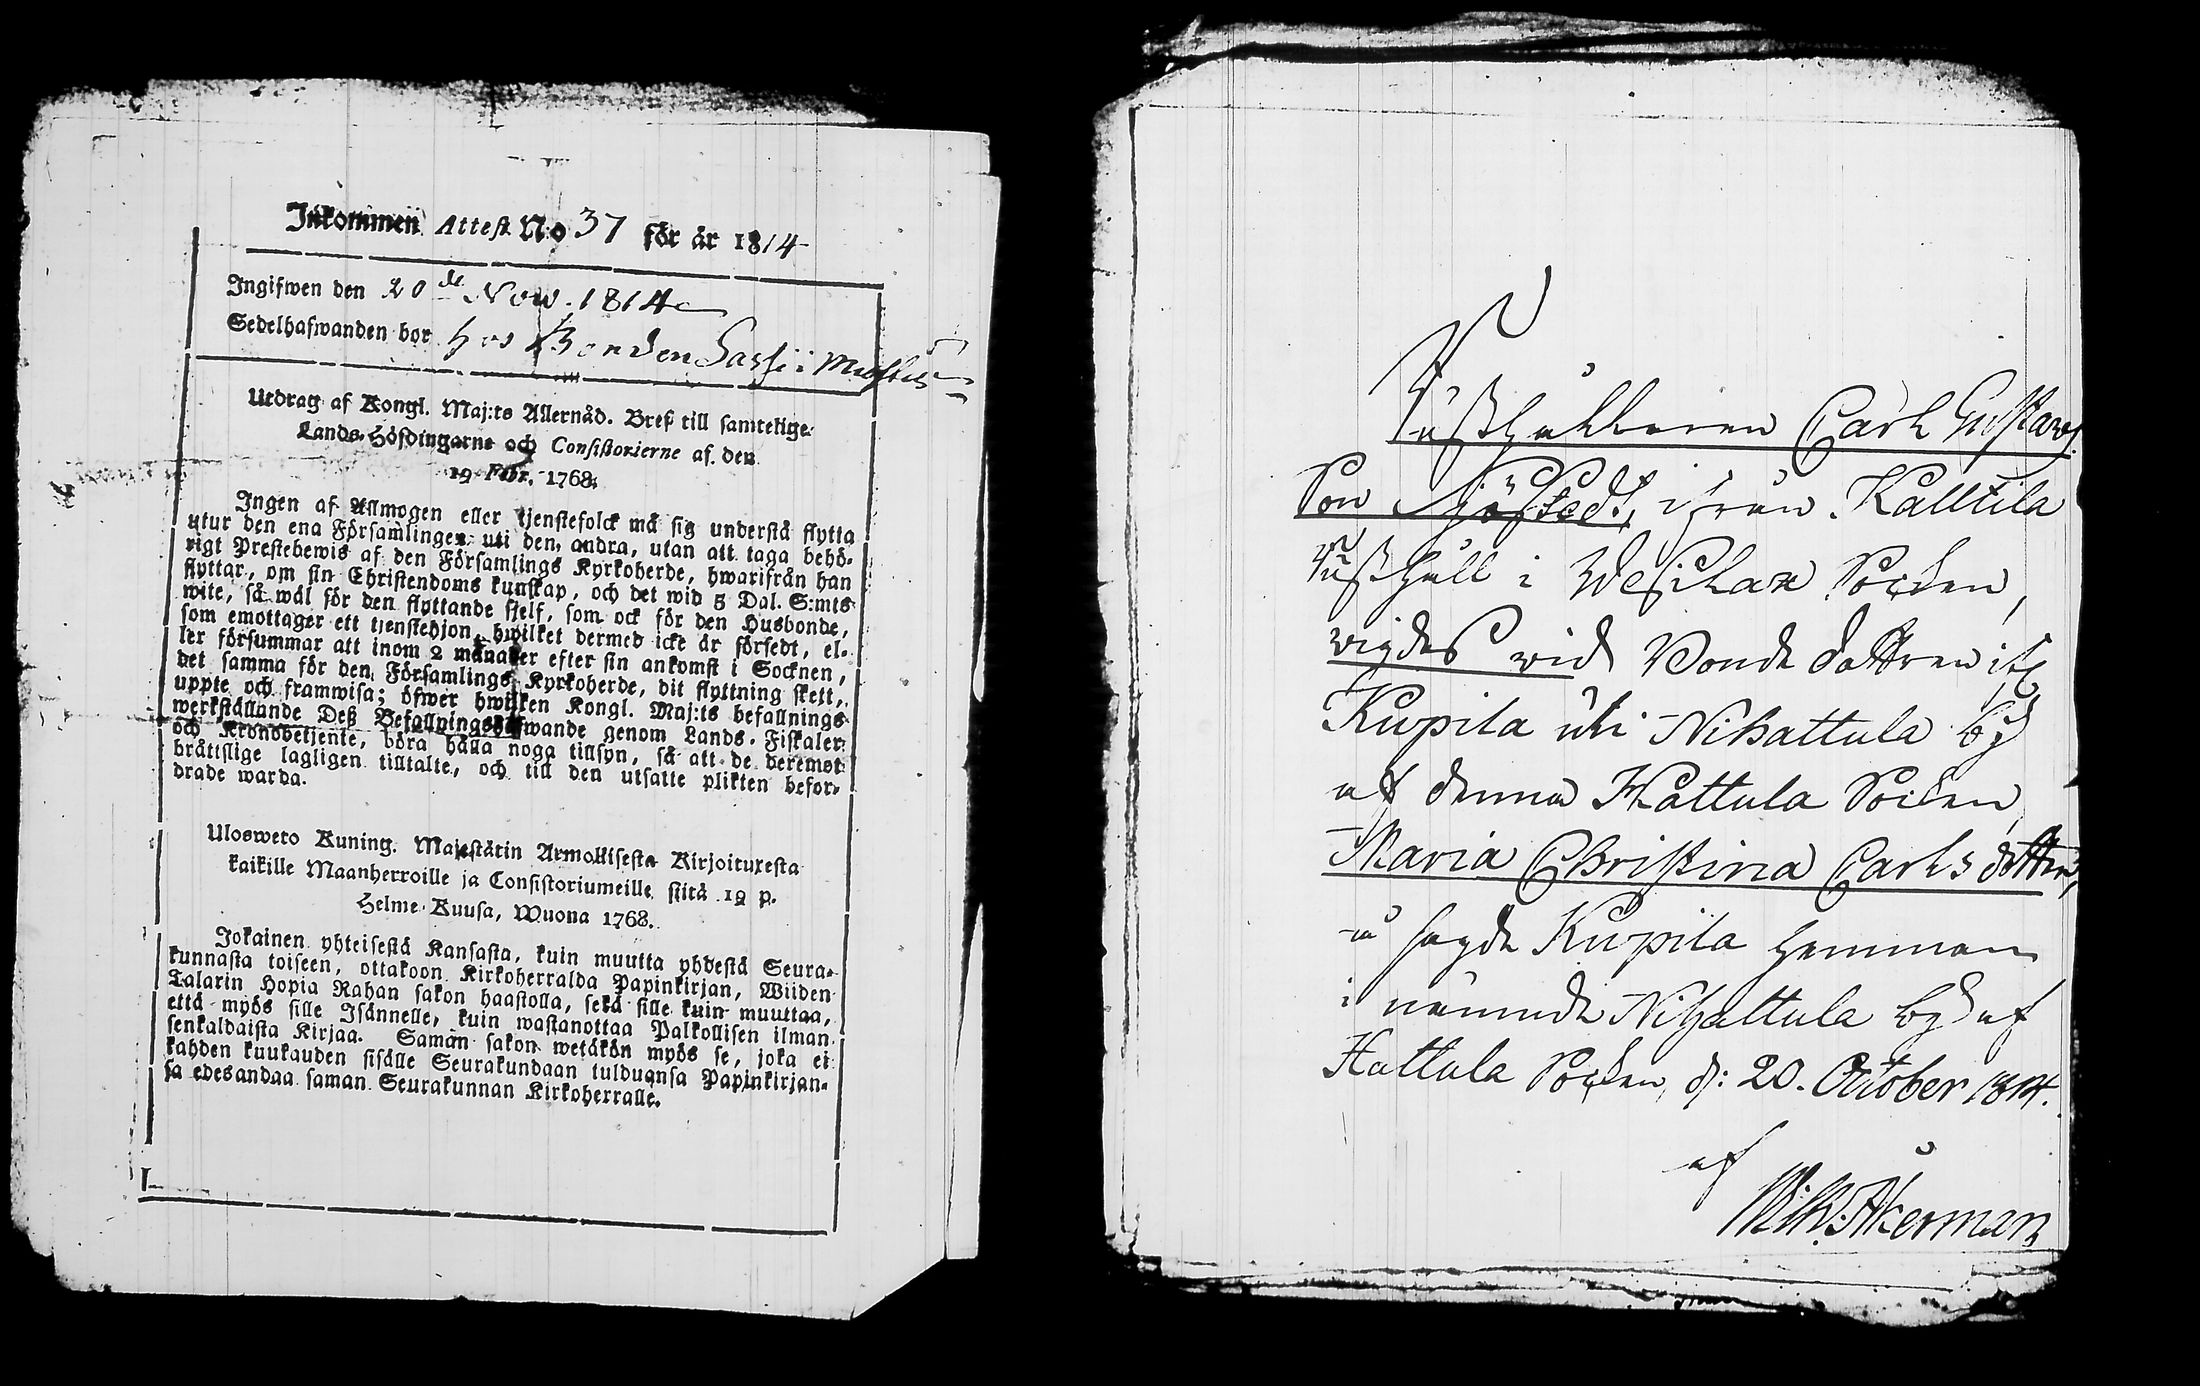 Inkommen Attest N:o 37 för år 1814
Ingifwen den 20de Now. 1814
Sedelhafwanden bor hos Bonden Lassi i
Utdrag af Kongl. Maj:ts Allernåd. Bref till samtelige
Lands-Höfdingarne och Consistorierne af den
19 Febr. 1768.
Ingen af Allmogen eller tjenstefolck må sig understå flytta
utur den ena Församlingen uti den andra, utan att taga behö-
rigt Prestebewis af den Församlings Kyrkoherde, hwarifrån han
flyttar, om sin Christendoms kunskap, och det wid 5 Dal. S:mts
wite, så wäl för den flyttande sjelf, som ock för den Husbonde,
som emottager ett tjenstehjon, hwilket dermed icke är försedt, el-
ler försummar att inom 2 månader efter sin ankomst i Socknen,
det samma för den Församlings Kyrkoherde, dit flyttning skett,
uppte och framwisa; öfwer hwilken Kongl. Maj:ts befallnings
werkställande Deß Befallningshafwande genom Lands-Fiskaler
och Kronobetjente, böra hålla noga tillsyn, så att de deremot
bråttslige lagligen tilltalte, och till den utsatte plikten befor-
drade warda.
Ulosweto Kuning. Majestätin Armollisesta Kirjoituxesta
kaikille Maanherroille ja Consistoriumeille siitä 19 p.
Helme-Kuusa, Wuona 1768.
Jokainen yhteisestä Kansasta, kuin muutta yhdestä Seura-
kunnasta toiseen, ottakoon Kirkoherralda Papinkirjan, Wiiden
Talarin Hopia Rahan sakon haastolla, sekä sille kuin muuttaa,
että myös sille Isännelle, kuin wastanottaa Palkollisen ilman
senkaldaista Kirjaa. Saman sakon wetäkön myös se, joka ei
kahden kuukauden sisälle Seurakundaan tulduansa Papinkirjan-
sa edesandaa saman Seurakunnan Kirkoherralle.
Rusthållaren Carl Gustavs
Son Sjöstedt, ifrån Kalltila
Rusthåll i Wesilax Socken,
wigdes wid Bonde dottren ifr
Kupila uti Nihattula by
af denna Hattula Socken
Maria Christina Carls dotter,
å sagde Kupila hemman
i nämnde Nihattula by af
Hattula Socken, d: 20. October 1814.
af
Wilh: Åkerman